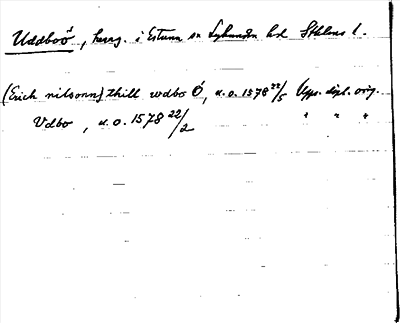 Uddboö, herrg. i Estuna sn Lyhundra hd Sthlms l.
(Erich nilsonn) thill wdbo Ö, u.o. 1578 22/5 Upps. dipl. orig.
Vdbo, u.o. 1578 22/2 " " "